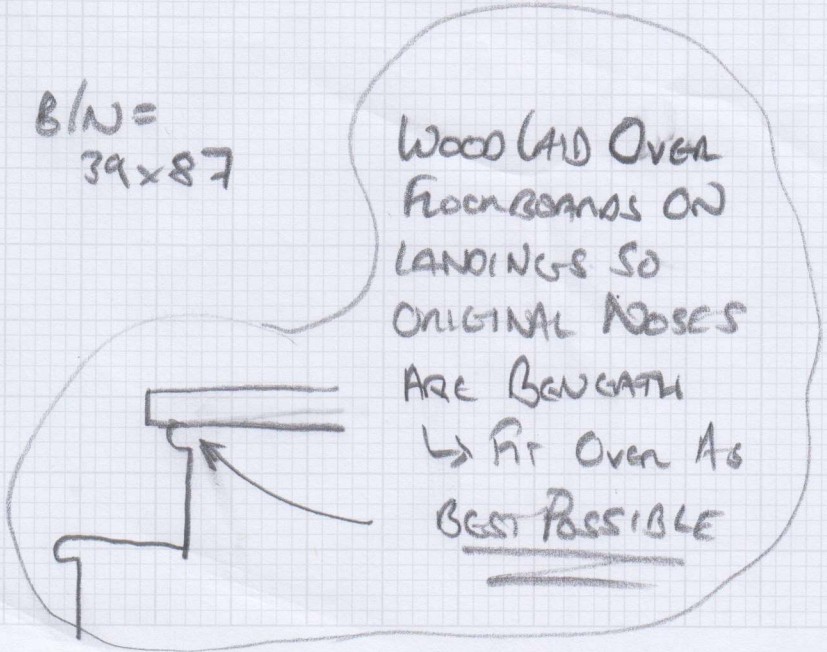 B/N=
39x87
WOOD LAID OVER
FLOORBOARDS ON
LANDINGS SO
ORIGINAL NOSES
ARE BENEATH
↳ FIT OVER AS
BEST POSSIBLE